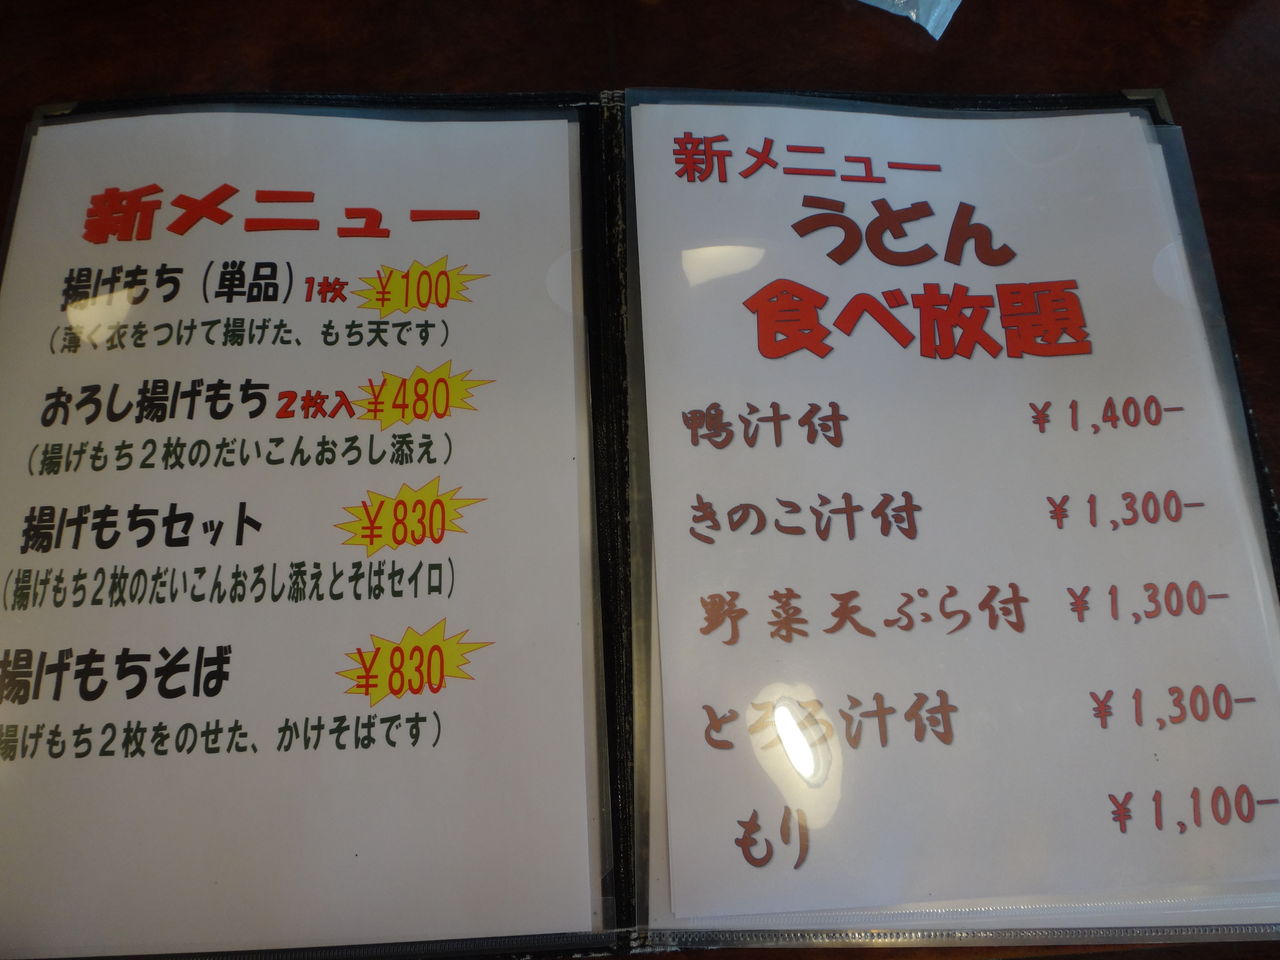 新メニュー
揚げもち（単品）1枚 ￥100
（薄く衣をつけて揚げた、もち天です）
おろし揚げもち 2枚入 ￥480
（揚げもち2枚のだいこんおろし添え）
揚げもちセット ￥830
（揚げもち2枚のだいこんおろし添えとそばセイロ）
揚げもちそば ￥830
揚げもち2枚をのせた、かけそばです）
新メニュー
うどん
食べ放題
鴨汁付 ￥1,400-
きのこ汁付 ￥1,300-
野菜天ぷら付 ￥1,300-
とろろ汁付 ￥1,300-
もり ￥1,100-